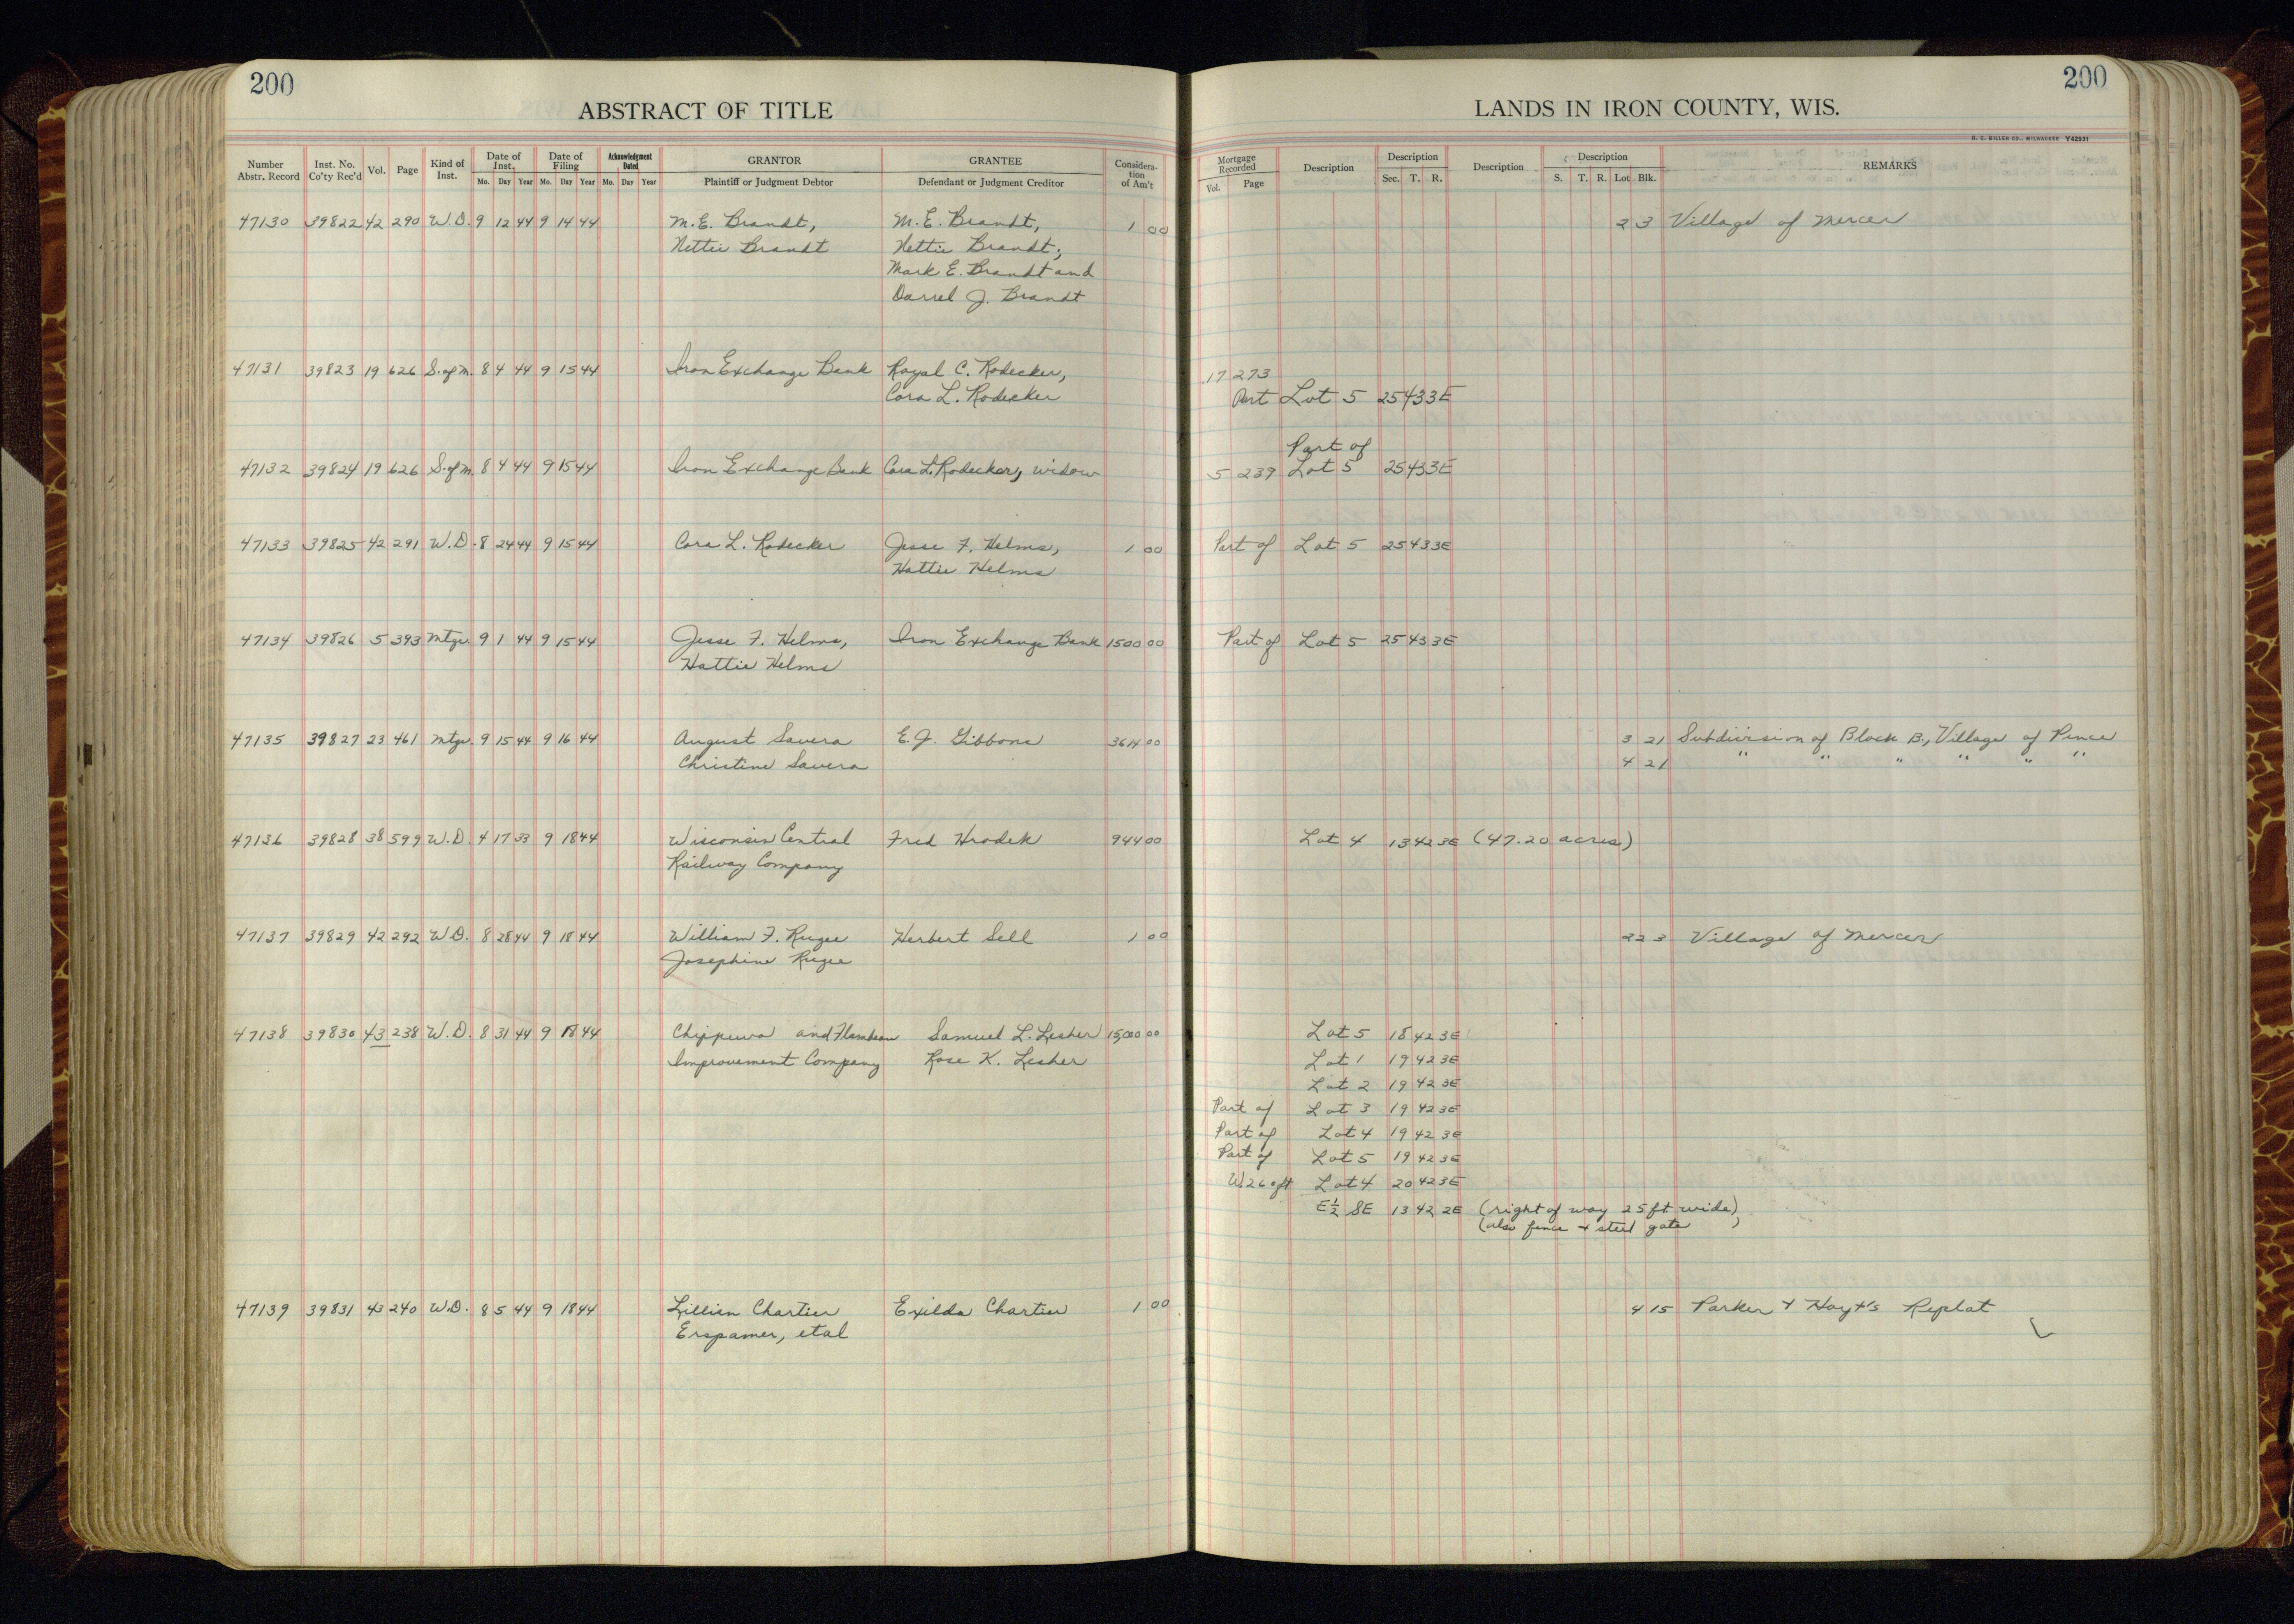 200
ABSTRACT OF TITLE
Number Abstr. Record Inst. No. Co'ty Rec'd Vol. Page Kind of Inst. Date of Inst. Mo. Day Year Date of Filing Mo. Day Year Acknowledgment Dated Mo. Day Year GRANTOR Plaintiff or Judgment Debtor GRANTEE Defendant or Judgment Creditor Consideration of Am't
47130 39822 42 290 W.D. 9 12 44 9 14 44 M.E. Brandt, M.E. Brandt, 1 00
Nettie Brandt Nettie Brandt,
Mark E. Brandt and
Darrel J. Brandt
47131 39823 19 626 S. of M. 8 4 44 9 15 44 Iron Exchange Bank Royal C. Rodecker,
Cora L. Rodecker
47132 39824 19 626 S. of M. 8 4 44 9 15 44 Iron Exchange Bank Cora L. Rodecker, widow
47133 39825 42 291 W.D. 8 24 44 9 15 44 Cora L. Rodecker Jesse F. Helms, 1 00
Hattie Helms
47134 39826 5 393 Mtge. 9 1 44 9 15 44 Jesse F. Helms, Iron Exchange Bank 1500 00
Hattie Helms
47135 39827 23 461 Mtge. 9 15 44 9 16 44 August Savera E.J. Gibbons 3614 00
Christine Savera
47136 39828 38 599 W.D. 4 17 33 9 18 44 Wisconsin Central Fred Hrodek 944 00
Railway Company
47137 39829 42 292 W.D. 8 28 44 9 18 44 William F. Rugee Herbert Sell 1 00
Josephine Rugee
47138 39830 43 238 W.D. 8 31 44 9 18 44 Chippewa and Flambeau Samuel L. Lesher 15,000 00
Improvement Company Rose K. Lesher
47139 39831 43 240 W.D. 8 5 44 9 18 44 Lillian Chartier Exilda Chartier 1 00
Erspamer, etal
200
LANDS IN IRON COUNTY, WIS.
H. C. MILLER CO., MILWAUKEE Y42931
Mortgage Recorded Vol. Page Description Description Sec. T. R. Description Description S. T. R. Lot Blk. REMARKS
2 3 Village of Mercer
17 273
Part Lot 5 25 43 3E
Part of
5 239 Lot 5 25 43 3E
Part of Lot 5 25 43 3E
Part of Lot 5 25 43 3E
3 21 Subdivision of Block B., Village of Pence
4 21 " " " " " "
Lot 4 13 42 3E (47.20 acres)
22 3 Village of Mercer
Lot 5 18 42 3E
Lot 1 19 42 3E
Lot 2 19 42 3E
Part of Lot 3 19 42 3E
Part of Lot 4 19 42 3E
Part of Lot 5 19 42 3E
W. 260 ft Lot 4 20 42 3E
E½ SE 13 42 2E (right of way 25 ft wide)
(also fence & steel gate)
4 15 Parker & Hoyt's Replat